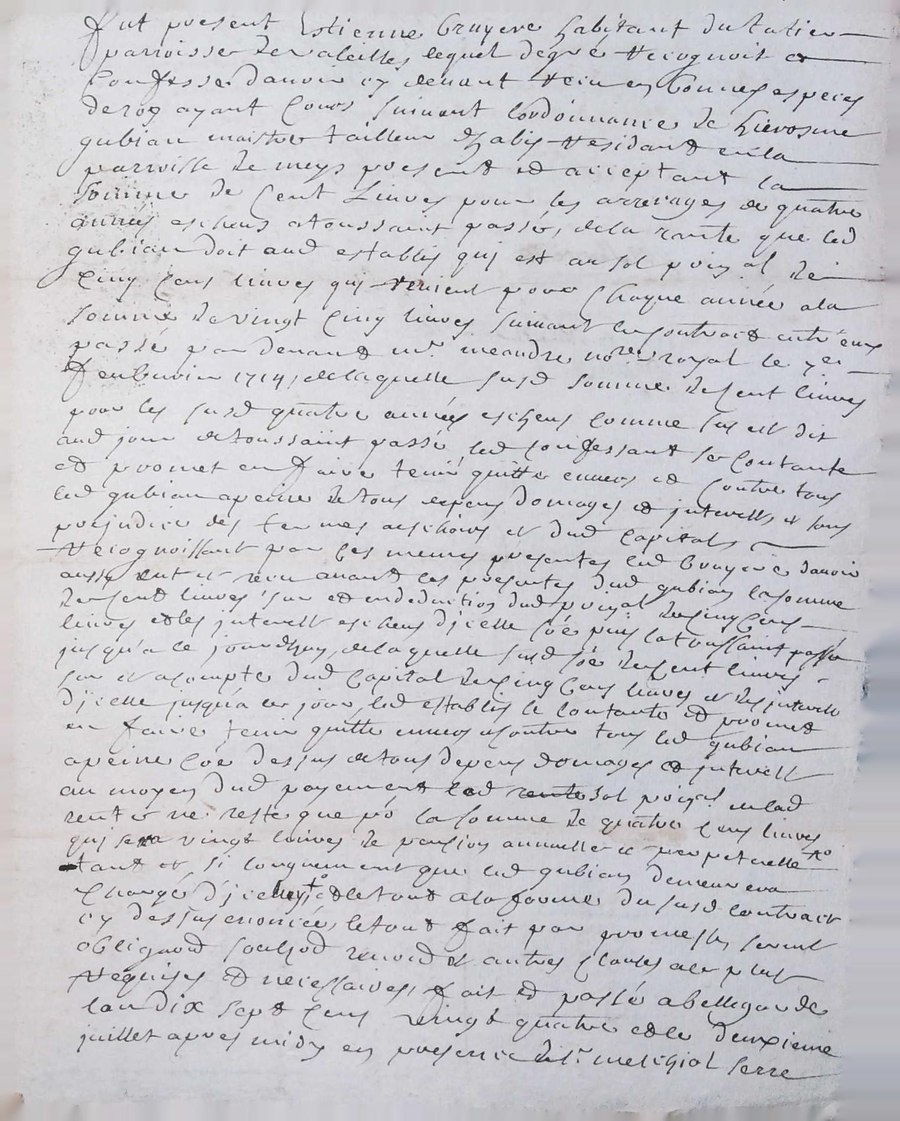 fut present Estienne bruyere habitant du
parroisse de valeilles lequel de gré recognoit et
confesse d'avoir cy devant receu en bonnes especes
de roy ayant cours suivant l'ordonnance de hierosme
gubian maistre tailleur d'habis residant en la
parroisse de meys present et acceptant la
somme de cent livres pour les arrerages de quatre
années escheus a toussaint passés, de la rante que led
gubian doit aud establis qui est au sol prinpal de
cinq cens livres qui revient pour chaque année a la
somme de vingt cinq livres suivant le contract entr'eux
passé par devand mr. meandre nore. royal le 7e.
febvrier 1714, de laquelle susd somme de cent livres
pour les susd quatre années escheus comme sus est dit
aud jour de toussaint passé, led confessant se contante
et promet en faire tenir quitte envers et contre tous
led gubian a peine de tous depens domages et interests, et sans
prejudice des termes a eschoirs et dud capital
recognoissant par ces memes presentes led bruyere d'avoir
aussy eut et receu avant les presentes dud gubian la somme
de cent livres sur et en deduction dud prinpal de cinq cens
livres et les interest escheus d'icelle soe puis la toussaint passé
jusqu'a ce jourdhuy, de laquelle susd soe de cent livres
sur et a compte dud capital de cinq cens livres et des interest
d'icelle jusqu'a ce jour, led establis se contante et promet
en faire tenir quitte envers et contre tous led gubian
a peine coe dessus de tous depens domages et interest
au moyen dud payement led rente sol prinpal en lad
rente ne reste que po la somme de quatre cens livres
qui sera vingt livres de pansion annuelle et perpetuelle
tant et si longuement que led gubian demeurera
chargé d'iceluy et de tout a la forme du susd contract
cy dessus enoncée, le tout fait par promesse, serment
obligaod soubsod renonciod et autres clauses a ce plus
requises et necessaires, fait et passé a bellegarde
l'an dix sept cens vingt quatre et le deuxieme
juillet apres midy en presence de sr. melchiol serre